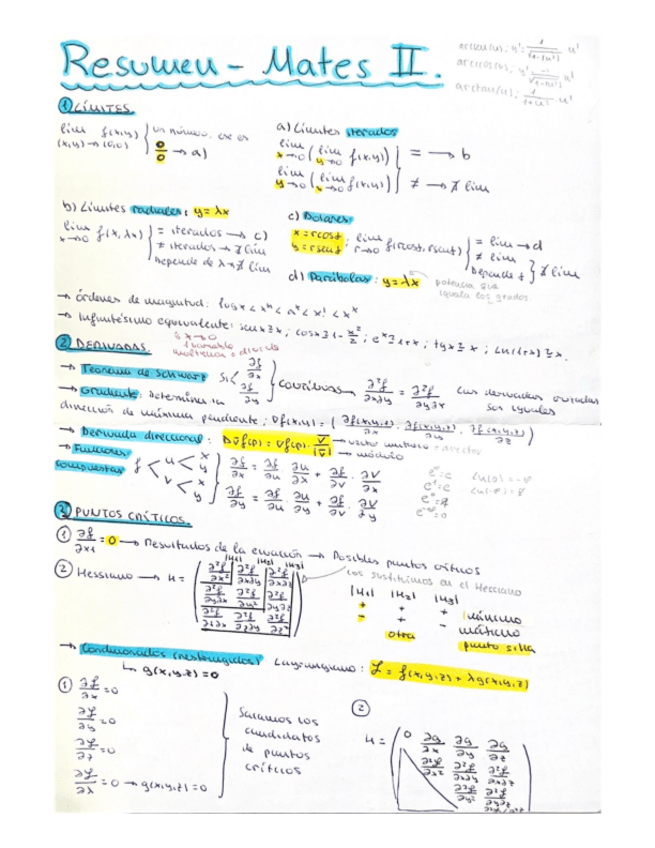 Resumen - Mates II.
arcsen(u); y' = 1/√(1-(u²)) · u'
arccos(u); y' = -1/√(1-(u²)) · u'
arctan(u); 1/(1+u²) · u'
① LÍMITES.
lim (x,y)→(0,0) f(x,y) } un número, ese es
0/0 → a)
a) Límites iterados
lim x→0 (lim y→0 f(x,y)) } = → b
lim y→0 (lim x→0 f(x,y)) } ≠ → ∄ lim
b) Límites radiales: y = λx
lim x→0 f(x, λx) } = iterados → c)
≠ iterados → ∄ lim
Depende de λ → ∄ lim
c) Polares:
x = r cos t
y = r sen t ; lim r→0 f(r cos t, r sen t) } = lim → d
≠ lim
Depende t } ∄ lim
d) Parábolas: y = λx
potencia que iguala los grados
→ órdenes de magnitud: log x < xⁿ < aˣ < x! < xˣ
→ Infinitésimo equivalente: sen x ≃ x ; cos x ≃ 1 - x²/2 ; eˣ ≃ 1+x ; tg x ≃ x ; Ln(1+x) ≃ x.
si x→0
1 variable
② DERIVADAS.
→ Teorema de Schwarz Si ∂f/∂x ∂f/∂y } continuas → ∂²f/∂x∂y = ∂²f/∂y∂x Las derivadas cruzadas son iguales
→ Gradiente: determina la
dirección de máxima pendiente; ∇f(x,y) = (∂f(x,y,z)/∂x, ∂f(x,y,z)/∂y, ∂f(x,y,z)/∂z)
→ Derivada direccional: D v f(p) = ∇f(p) · v/|v| → vector unitario = director
→ módulo
→ Funciones compuestas f < u < x y
v < x y
} ∂f/∂x = ∂f/∂u · ∂u/∂x + ∂f/∂v · ∂v/∂x
∂f/∂y = ∂f/∂u · ∂u/∂y + ∂f/∂v · ∂v/∂y
③ PUNTOS CRÍTICOS.
① ∂f/∂x1 = 0 → Resultados de la ecuación → Posibles puntos críticos
Los sustituimos en el Hessiano
② Hessiano → H =
|H1| |H2| |H3|
∂²f/∂x² ∂²f/∂x∂y ∂²f/∂x∂z
∂²f/∂y∂x ∂²f/∂y² ∂²f/∂y∂z
∂²f/∂z∂x ∂²f/∂z∂y ∂²f/∂z²
|H1| |H2| |H3|
+ + + mínimo
- + - máximo
otra punto silla
→ Condicionados (restringidos) Lagrangiano: L = f(x,y,z) + λg(x,y,z)
↳ g(x,y,z) = 0
① ∂L/∂x = 0
∂L/∂y = 0
∂L/∂z = 0
∂L/∂λ = 0 → g(x,y,z) = 0
Sacamos los
candidatos
de puntos
críticos
②
H =
0 ∂g/∂x ∂g/∂y ∂g/∂z
∂²L/∂x² ∂²L/∂x∂y ∂²L/∂x∂z
∂²L/∂y² ∂²L/∂y∂z
∂²L/∂z²